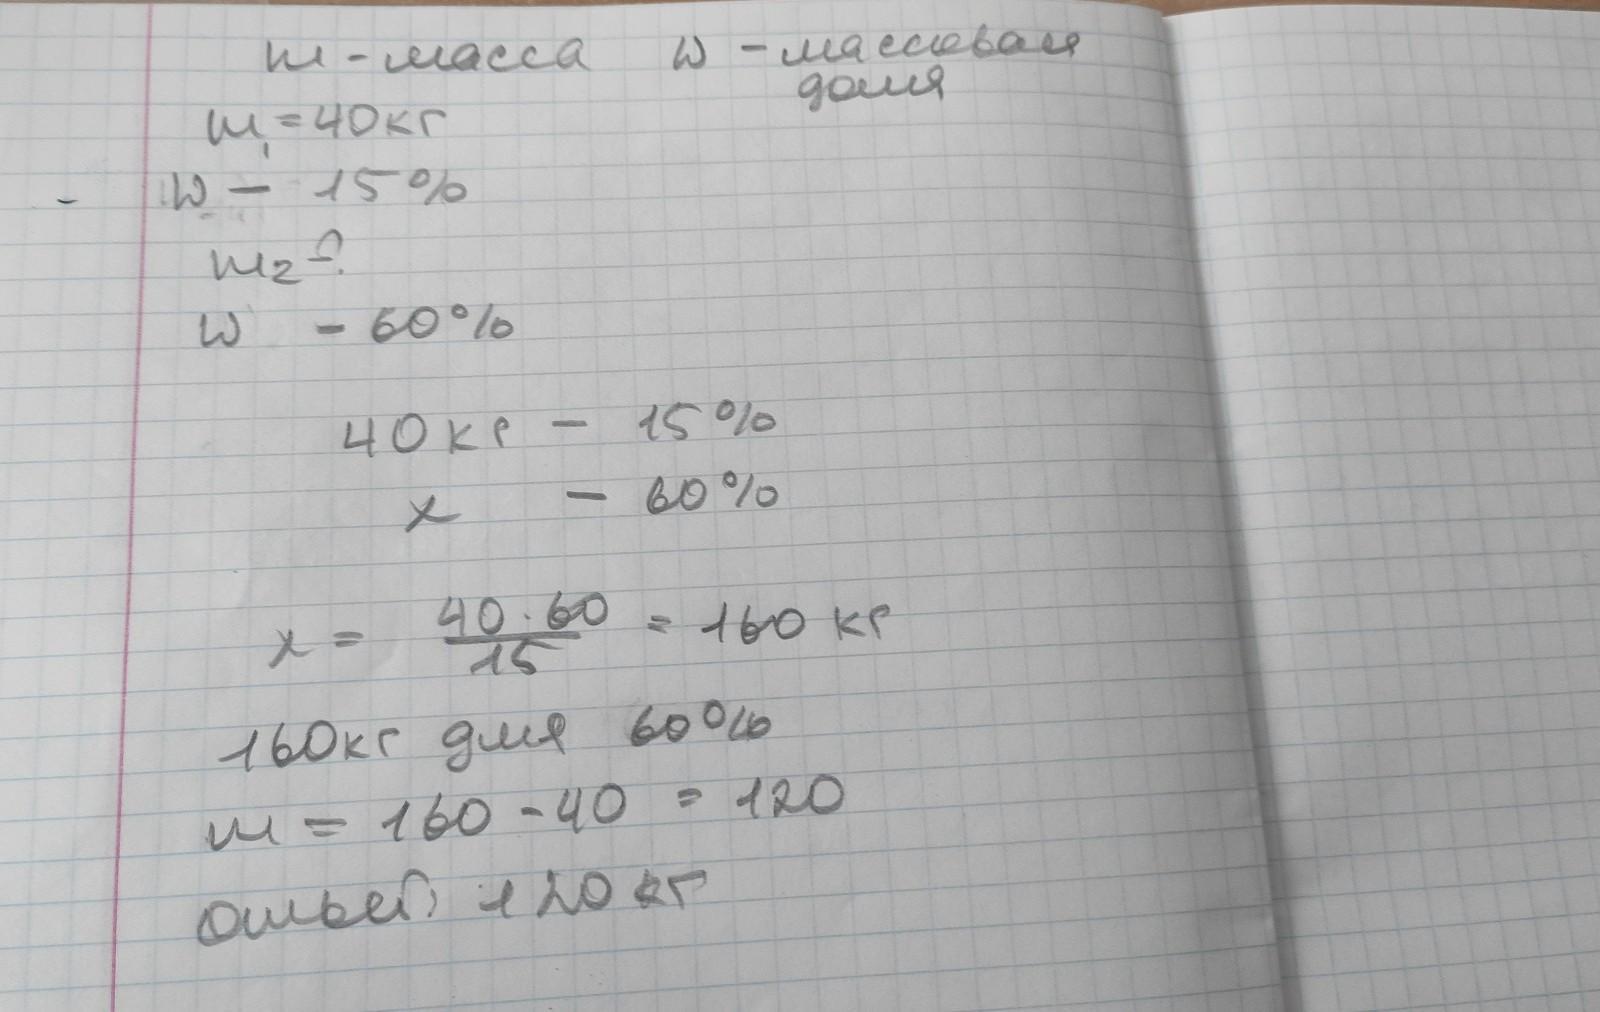 m - масса w - массовая
доля
m₁ = 40кг
w - 15%
m₂ - ?
w - 60%
40кг - 15%
x - 60%
x = 40·60/15 = 160 кг
160кг для 60%
m = 160 - 40 = 120
ответ: 120 кг